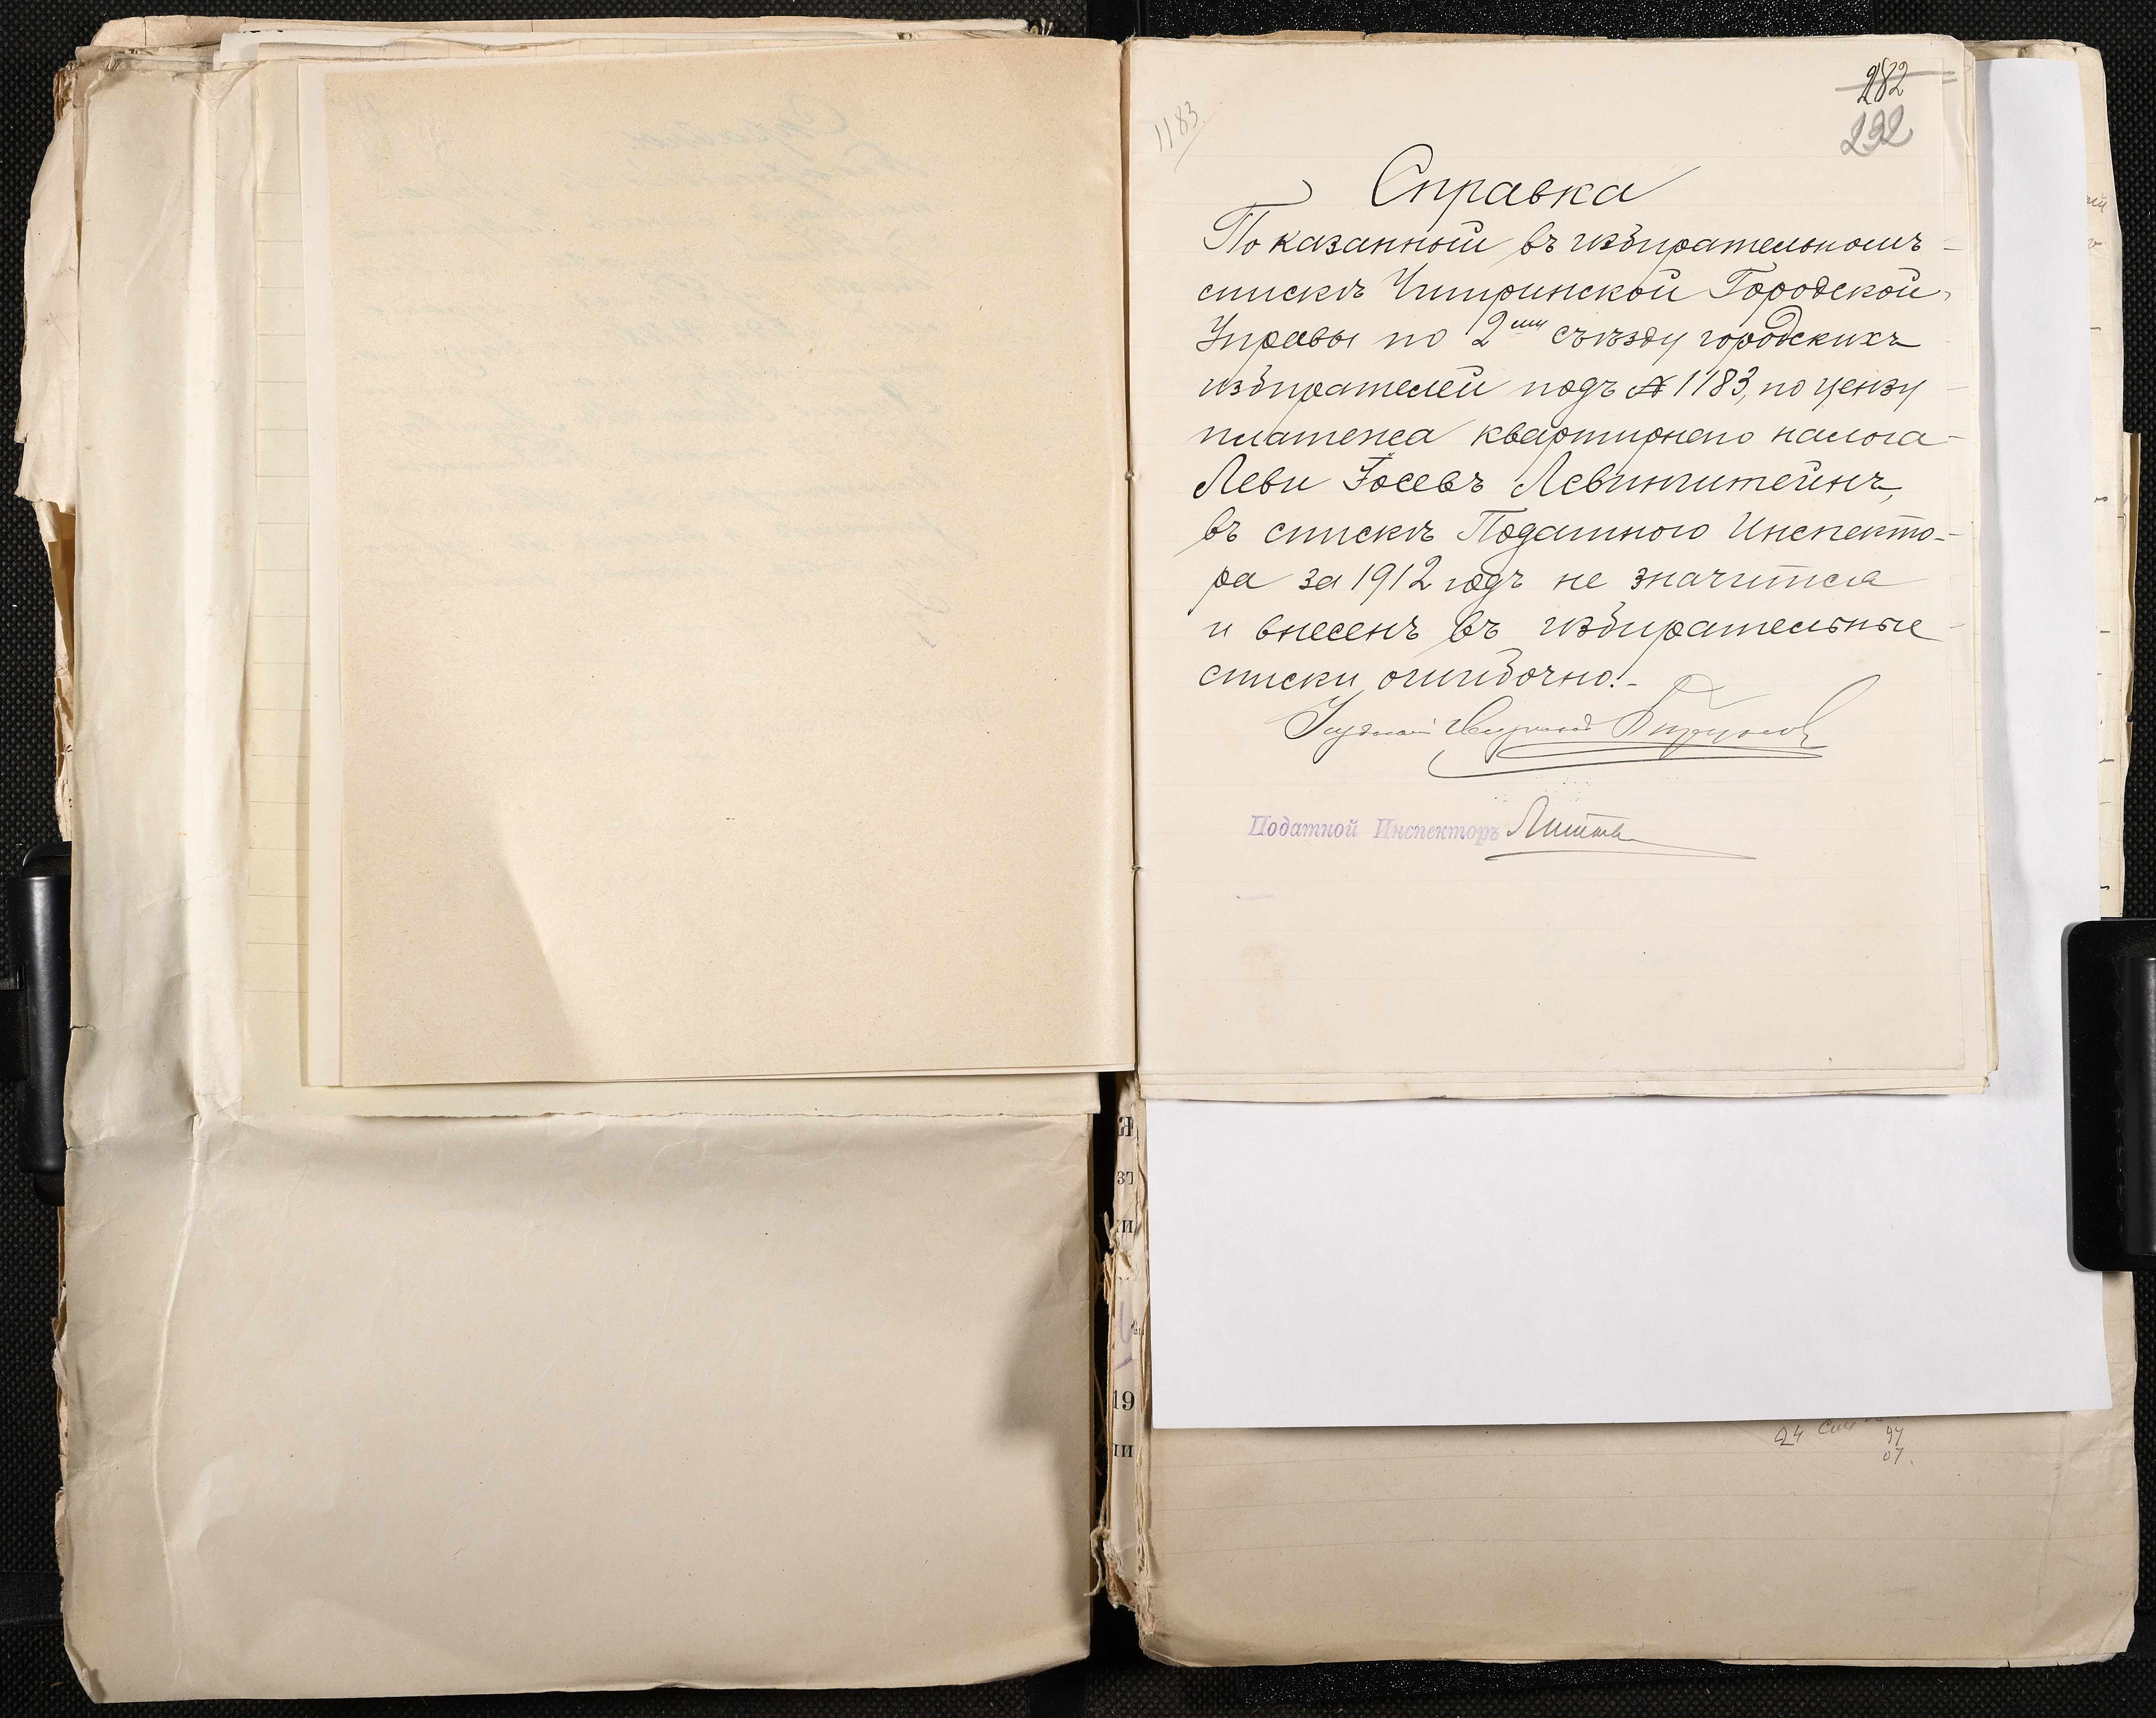 1183.
282
232
Справка
Показанный въ избирательномъ
спискѣ Читинской Городской
Управы по 2ому съѣзду городскихъ
избирателей подъ № 1183, по цензу
платежа квартирнаго налога
Леви Іосевъ Левинштейнъ,
въ спискѣ Податного Инспекто-
ра за 1912 годъ не значится
и внесенъ въ избирательные
списки ошибочно.-
Податной Инспекторъ
19
24